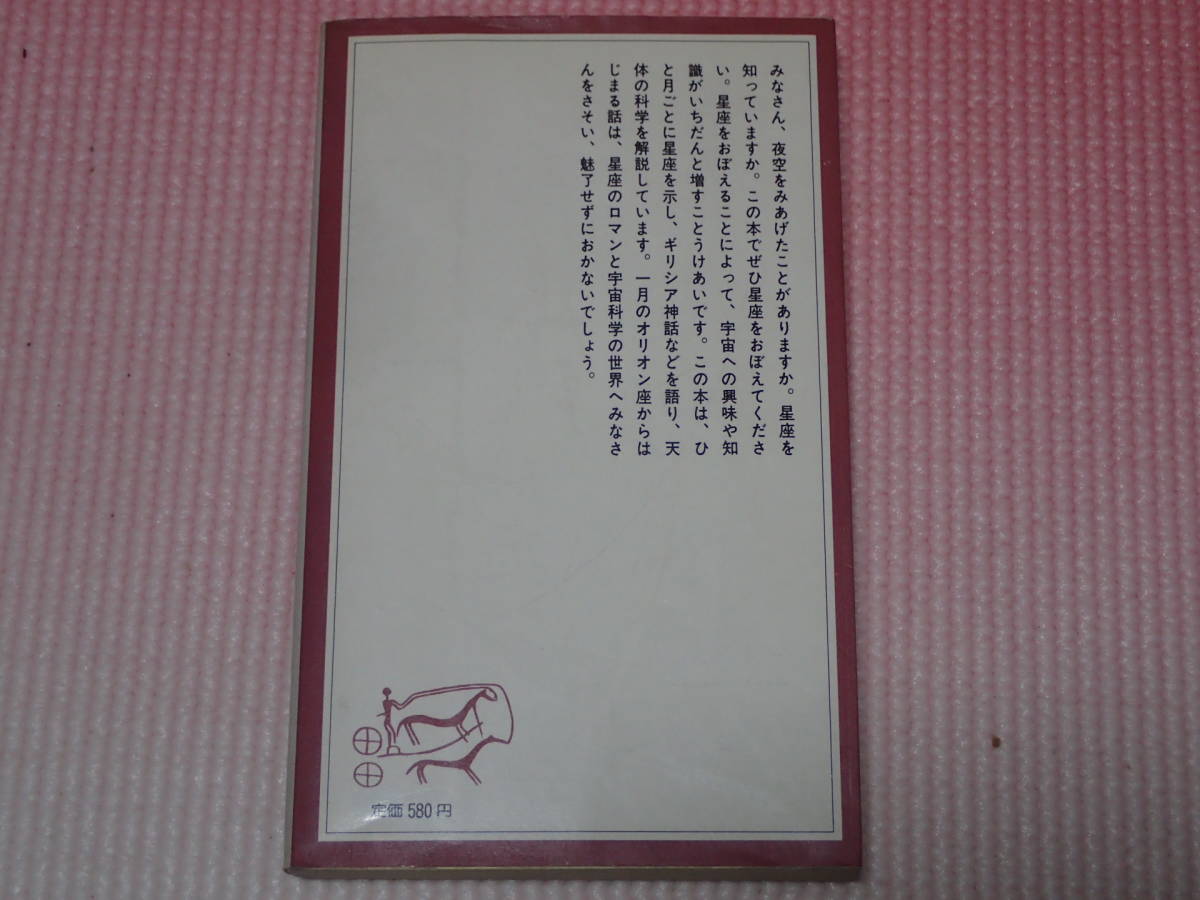 みなさん、夜空をみあげたことがありますか。星座を
知っていますか。この本でぜひ星座をおぼえてくださ
い。星座をおぼえることによって、宇宙への興味や知
識がいちだんと増すことうけあいです。この本は、ひ
と月ごとに星座を示し、ギリシア神話などを語り、天
体の科学を解説しています。一月のオリオン座からは
じまる話は、星座のロマンと宇宙科学の世界へみなさ
んをさそい、魅了せずにおかないでしょう。
定価580円